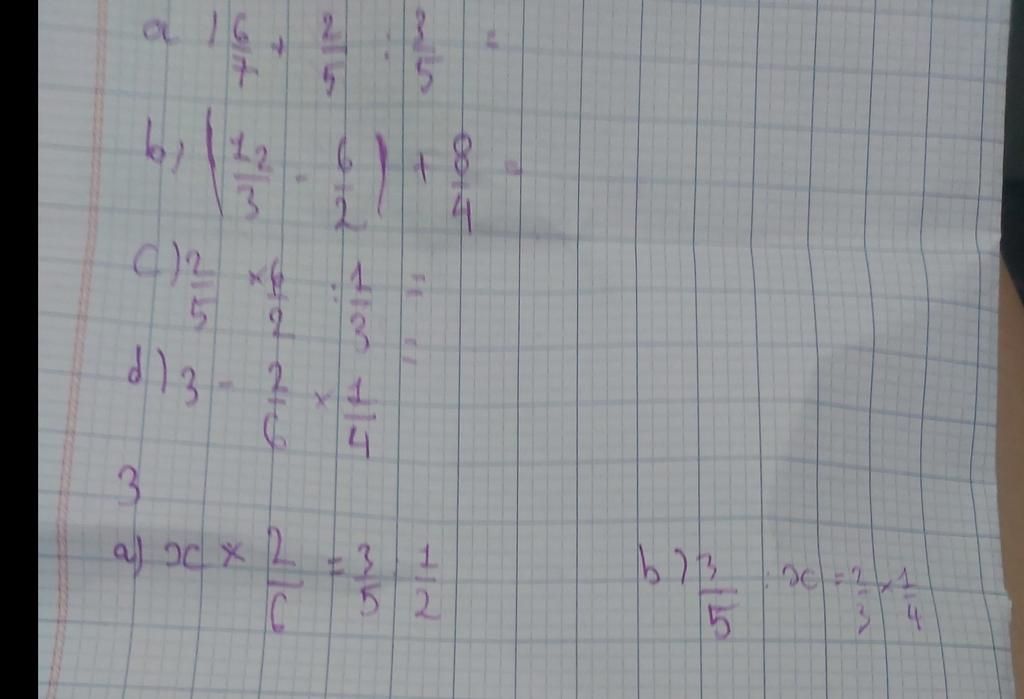 a) 6/7 + 2/5 : 3/5 =
b) (12/3 - 6/2) + 8/4 =
c) 2/5 × 6/2 : 1/3 =
d) 3 - 2/6 × 1/4 =
3
a) x × 2/6 = 3/5 1/2
b) 3/5 : x = 2/3 × 1/4